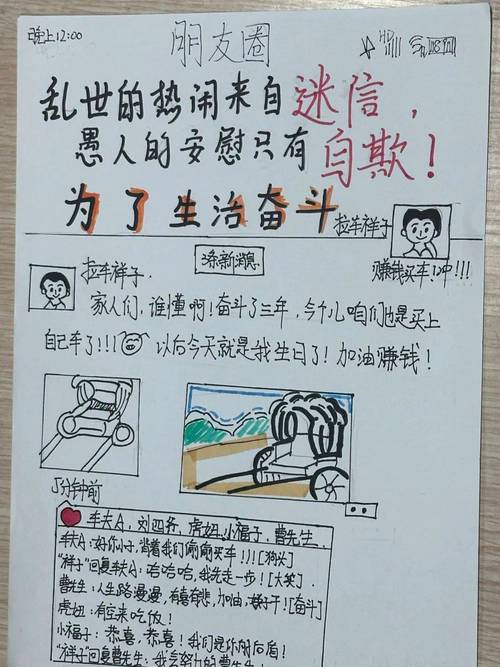 晚上12:00
朋友圈
HD
乱世的热闹来自迷信，
愚人的安慰只有自欺！
为了生活奋斗
拉车祥子
赚钱买车！冲！！！
添新消息
拉车祥子.
家人们，谁懂啊！奋斗了三年，今个儿咱们也是买上
自己车了！！！以后今天就是我生日了！加油赚钱！
5分钟前
车夫A，刘四爷，虎妞，小福子，曹先生
车夫A：好你小子，背着我们偷偷买车！！！[狗头]
"祥子"回复车夫A：哈哈哈，我先走一步！[大笑].
曹先生：人生路漫漫，有喜有悲，加油，好干！[奋斗]
虎妞：有空来吃饭！
小福子：恭喜，恭喜！我们是你附后盾！
"祥子"回复曹先生：我会努力的曹先生